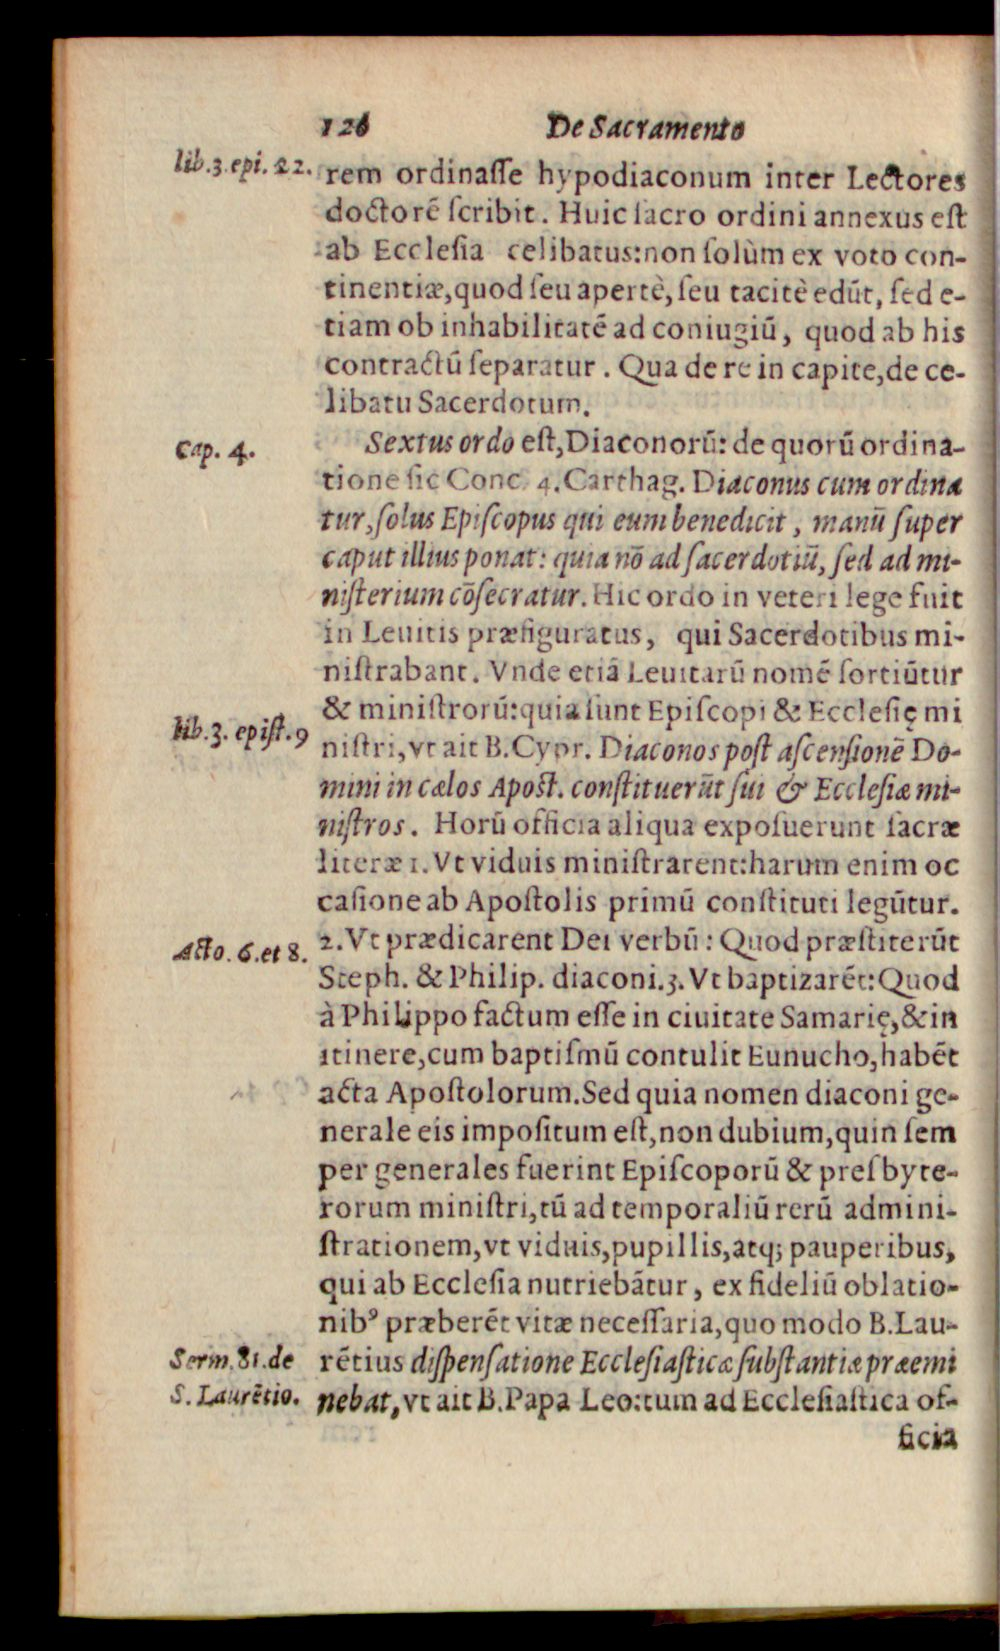 126 De Sacramento
lib.3.epi.22.
rem ordinaſſe hypodiaconum inter Lectores
doctorē ſcribit. Huic ſacro ordini annexus eſt
ab Eccleſia celibatus:non ſolùm ex voto con-
tinentiæ,quod ſeu apertè, ſeu tacitè edūt, ſed e-
tiam ob inhabilitatē ad coniugiū, quod ab his
contractū ſeparatur. Qua de re in capite,de ce-
libatu Sacerdotum.
Cap. 4.
Sextus ordo eſt,Diaconorū: de quorū ordina-
tione ſic Conc. 4. Carthag. Diaconus cum ordina
tur,ſolus Epiſcopus qui eum benedicit, manū ſuper
caput illius ponat: quia nō ad ſacerdotiū, ſed ad mi-
niſterium cōſecratur. Hic ordo in veteri lege fuit
in Leuitis præfiguratus, qui Sacerdotibus mi-
niſtrabant. Vnde etiā Leuitarū nomē ſortiūtur
& miniſtrorū:quia ſunt Epiſcopi & Eccleſię mi
lib.3. epiſt.9
niſtri,vt ait B.Cypr. Diaconos poſt aſcenſionē Do-
mini in cælos Apoſt. conſtituerūt ſui & Eccleſiæ mi-
niſtros. Horū officia aliqua expoſuerunt ſacræ
literæ 1. Vt viduis miniſtrarent:harum enim oc
caſione ab Apoſtolis primū conſtituti legūtur.
Acto. 6.et 8.
2. Vt prædicarent Dei verbū: Quod præſtiterūt
Steph. & Philip. diaconi.3. Vt baptizarēt:Quod
à Philippo factum eſſe in ciuitate Samarię,& in
itinere,cum baptiſmū contulit Eunucho,habēt
acta Apoſtolorum.Sed quia nomen diaconi ge-
nerale eis impoſitum eſt,non dubium,quin ſem
per generales fuerint Epiſcoporū & preſbyte-
rorum miniſtri,tū ad temporaliū rerū admini-
ſtrationem,vt viduis,pupillis,atq; pauperibus,
qui ab Eccleſia nutriebātur, ex fideliū oblatio-
nibꝰ præberēt vitæ neceſſaria,quo modo B.Lau-
Serm.81.de
S. Laurētio.
rētius diſpenſatione Eccleſiaſticæ ſubſtantiæ præemi
nebat, vt ait B.Papa Leo:tum ad Eccleſiaſtica of-
ficia